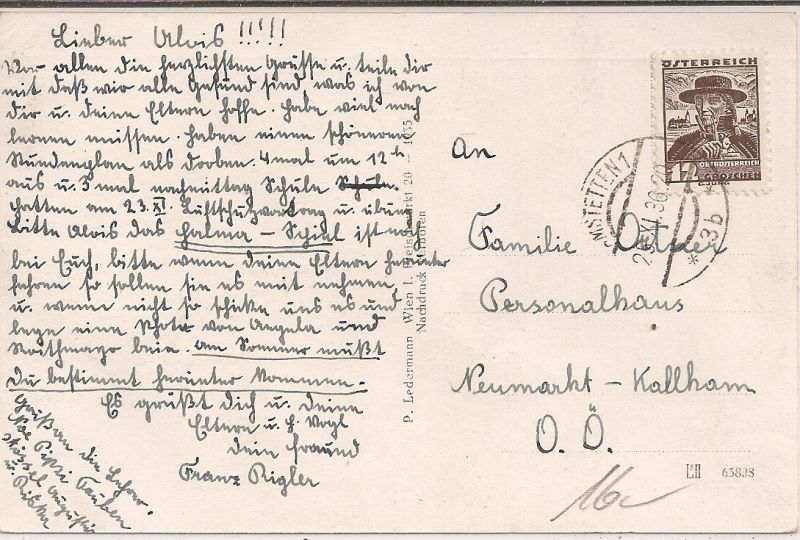 Lieber Alois !!!!!
Vor allen die herzlichsten Grüsse u. teile dir
mit daß wir alle Gesund sind, was ich von
dir u. deine Eltern hoffe. Habe viel nach
lernen müssen. Haben einen schöneren
Stundenplan als droben. 4 mal um 12 h
aus u. 3 mal nachmittag Schule Schule.
Hatten am 23. XI Luftschutzvortrag u. übung
bitte Alois das Halma – Schiel ist noch
bei Euch, bitte wenn deine Eltern herunter
fahren so sollen sie es mit nehmen,
u. wenn nicht so schicke uns es und
lege eine Photo von Angela und
beie. Am Sommer mußt
Du bestimmt herunter kommen.
Es grüßt dich u. deine
Eltern u. H. Vogl
dein Freund
Franz Rigler
Grüß an die Lehrer,
Pepi Tauben
Augustin
u.
P. Ledermann Wien I. Fleischmarkt 20 – 1935
Nachdruck verboten
ÖSTERREICH
OBERÖSTERREICH
12 GROSCHEN
MSTETTEN 1
XI. 36
* 3b
An
Familie
Personalhaus
Neumarkt – Kallham
O. Ö.
63808